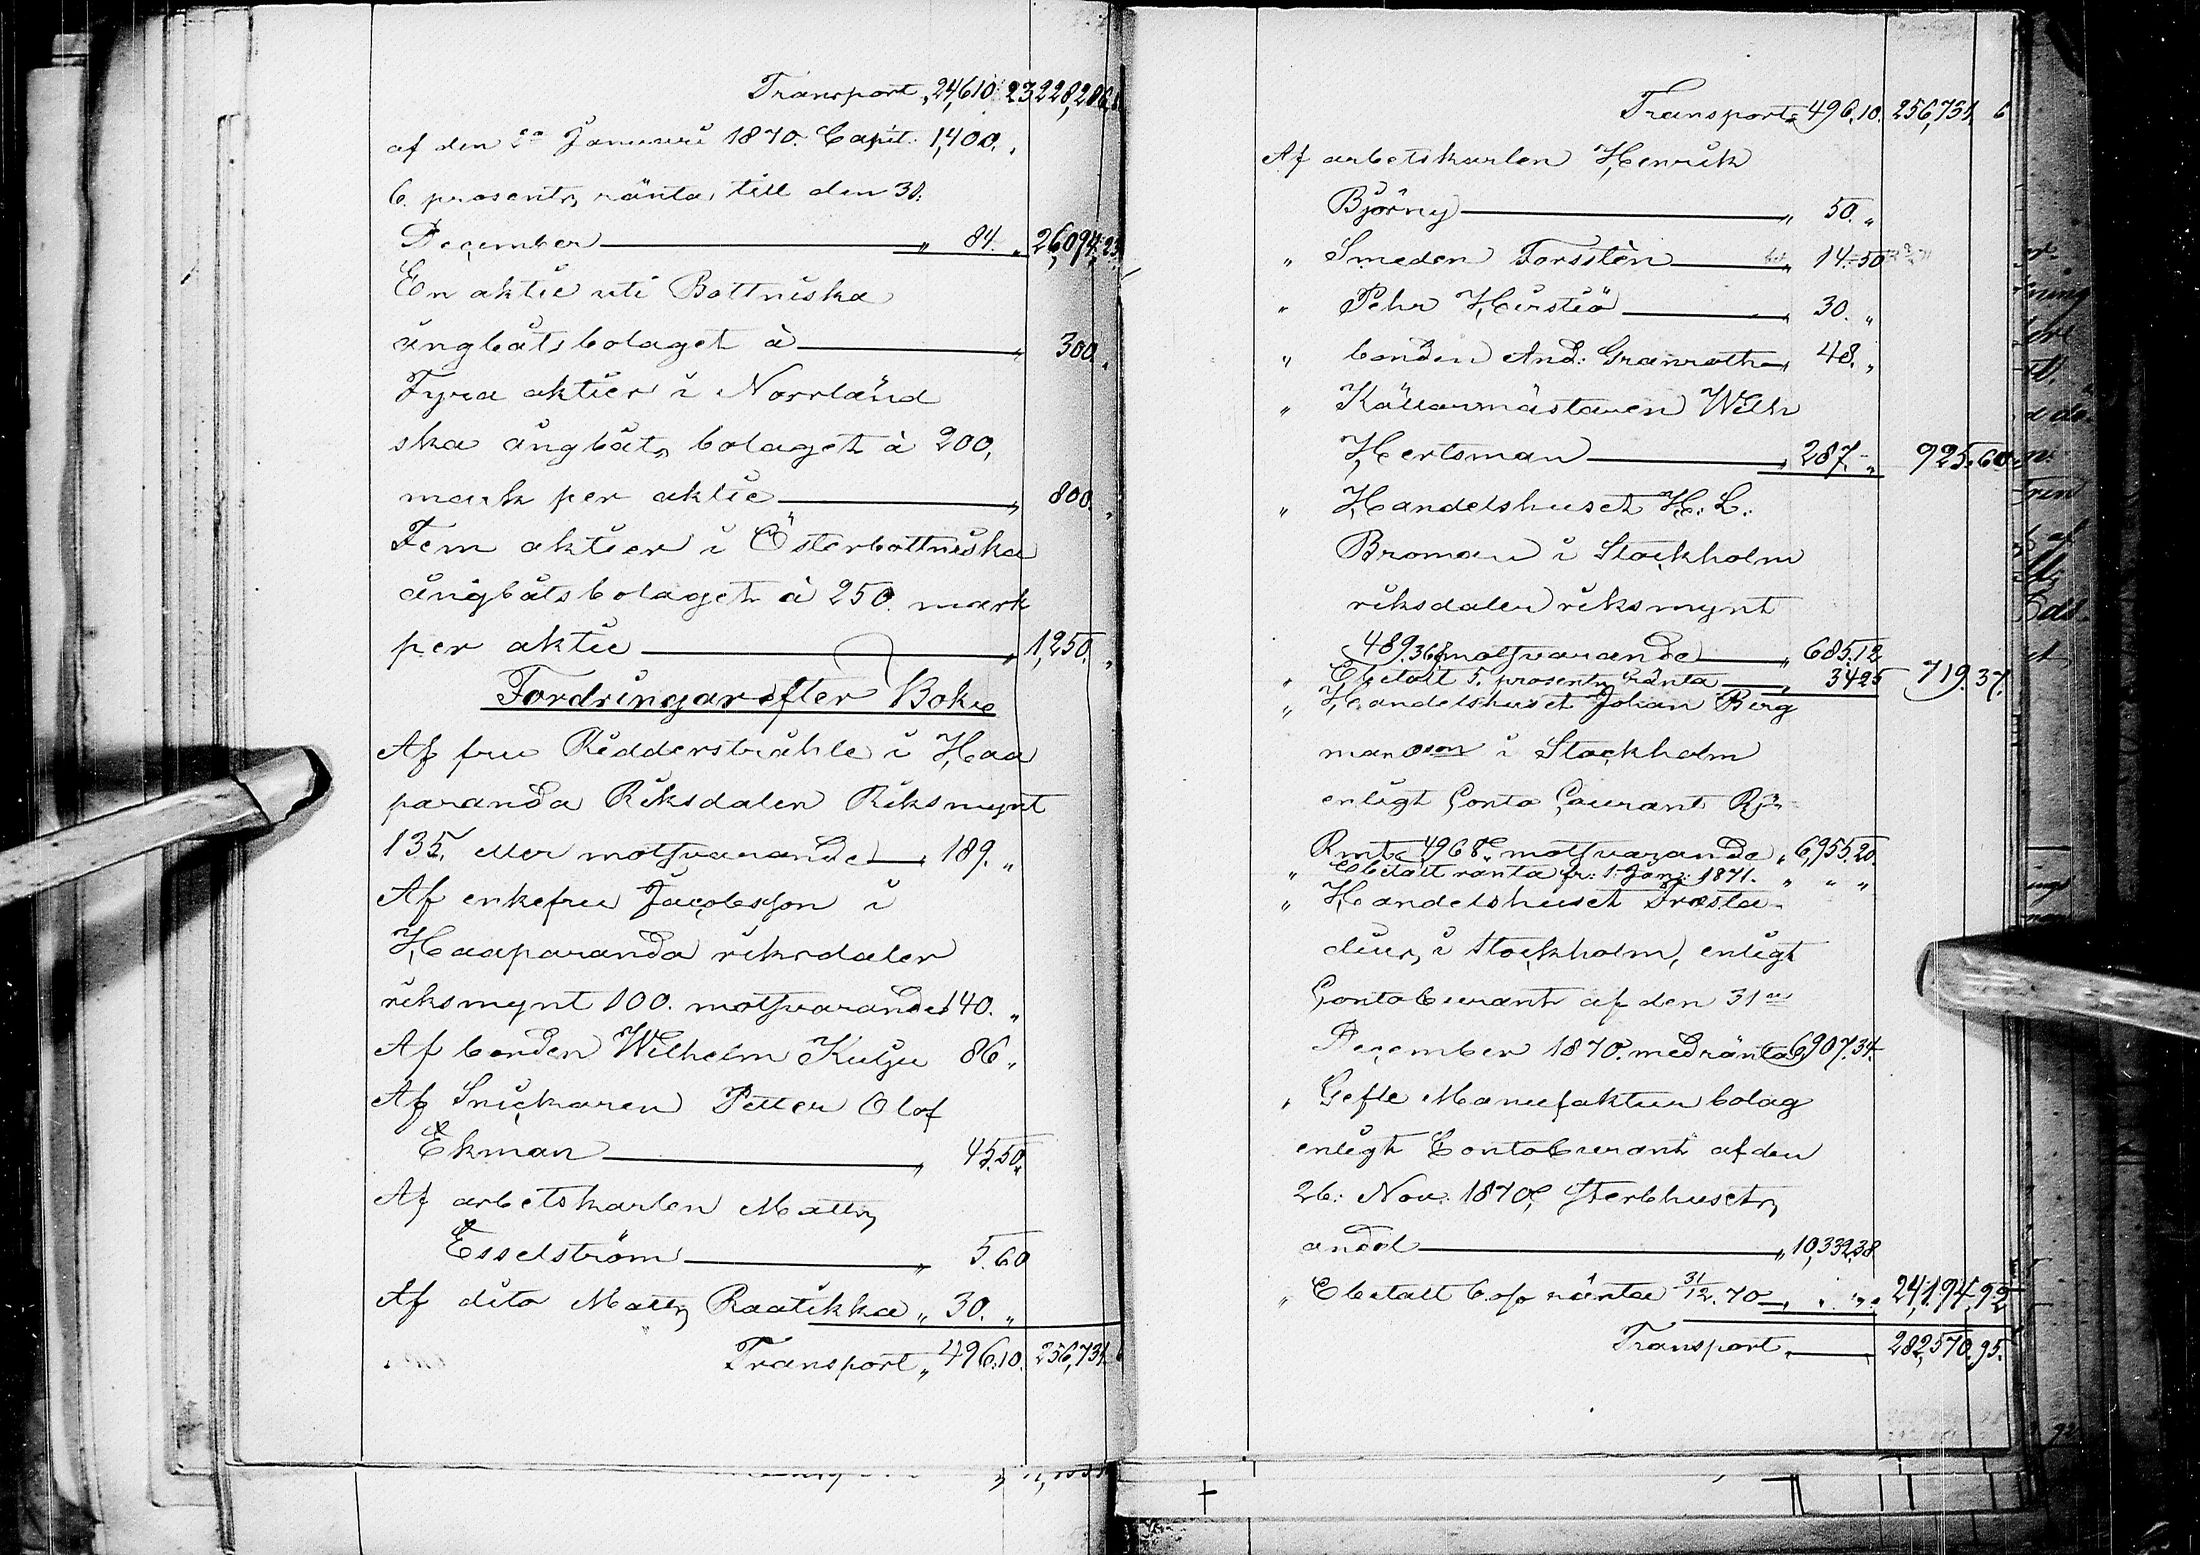 Transport „ 24,610 23 228,286
af den 2a Januari 1870. Capit. 1,400. „
6. prosents ränta, till den 30:
December „ 84. „ 26,094,23
En aktie uti Bottniska
ångbåtsbolaget à „ 300 „
Fyra aktier i Norrländ
ska ångbåts bolaget à 200,
mark per aktie „ 800. „
Fem aktier i Österbottniska
ångbåtsbolaget à 250. mark
per aktie „ 1,250. „
Fordringar efter Bok:
Af fru Ridderstråhle i Haa
paranda Riksdaler Riksmynt
135. eller motsvarande „ 189. „
Af enkefru Jacobsson i
Haaparanda riksdaler
riksmynt 100. motsvarande 140. „
Af bonden Wilhelm Kulju 86 „
Af Snickaren Petter Olof
Ekman „ 45.50.
Af arbetskarlen Matts
Esselström „ 5.60
Af dito Matts Raatikka „ 30. „
Transport „ 496.10. 256,731. 6
Transport „ 496.10. 256,731. 6
Af arbetskarlen Henrik
Björny „ 50. „
„ Smeden Forsstén „ 14.50
„ Pehr Hirstiö „ 30. „
„ bonden And: Granroth „ 48. „
„ Källarmästaren Wilh
Hertsman „ 287. „ 925.60
„ Handelshuset H: L:
Broman i Stockholm
riksdaler riksmynt
489.36 motsvarande „ 685.12
„ Obetalt 5. prosents ränta „ 34.25 719.37.
„ Handelshuset Johan Berg
mansson i Stockholm
enligt Conto Courant Rdr
Rmt 4968. motsvarande „ 6,955.20.
„ Obetalt ränta fr: 1 Jan: 1871. „ „ „
„ Handelshuset Frosta-
dius, i Stockholm, enligt
Conto Curant af den 31ne
December 1870. med ränta 6,907.34
„ Gefle Manufaktur bolag
enligt Conto Curant af den
26: Nov. 1870, sterbhusets
andel „ 10,332.38
„ Obetalt 6. o/o ränta 31/12.70 „ „ „ 24,194,92
Transport „ 282,570.95.